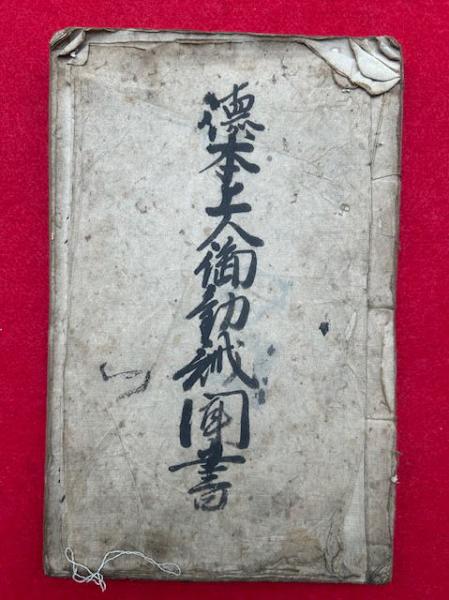 徳本上人御勧誡聞書